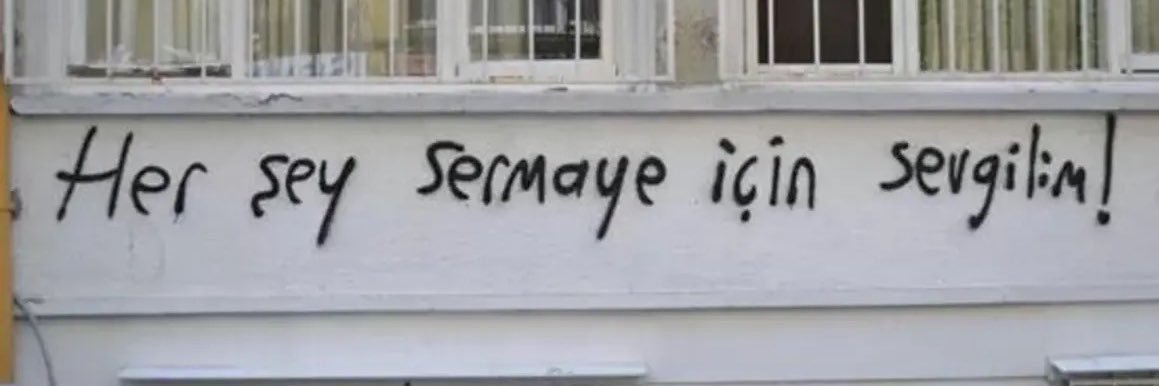 Her şey sermaye için sevgilim!